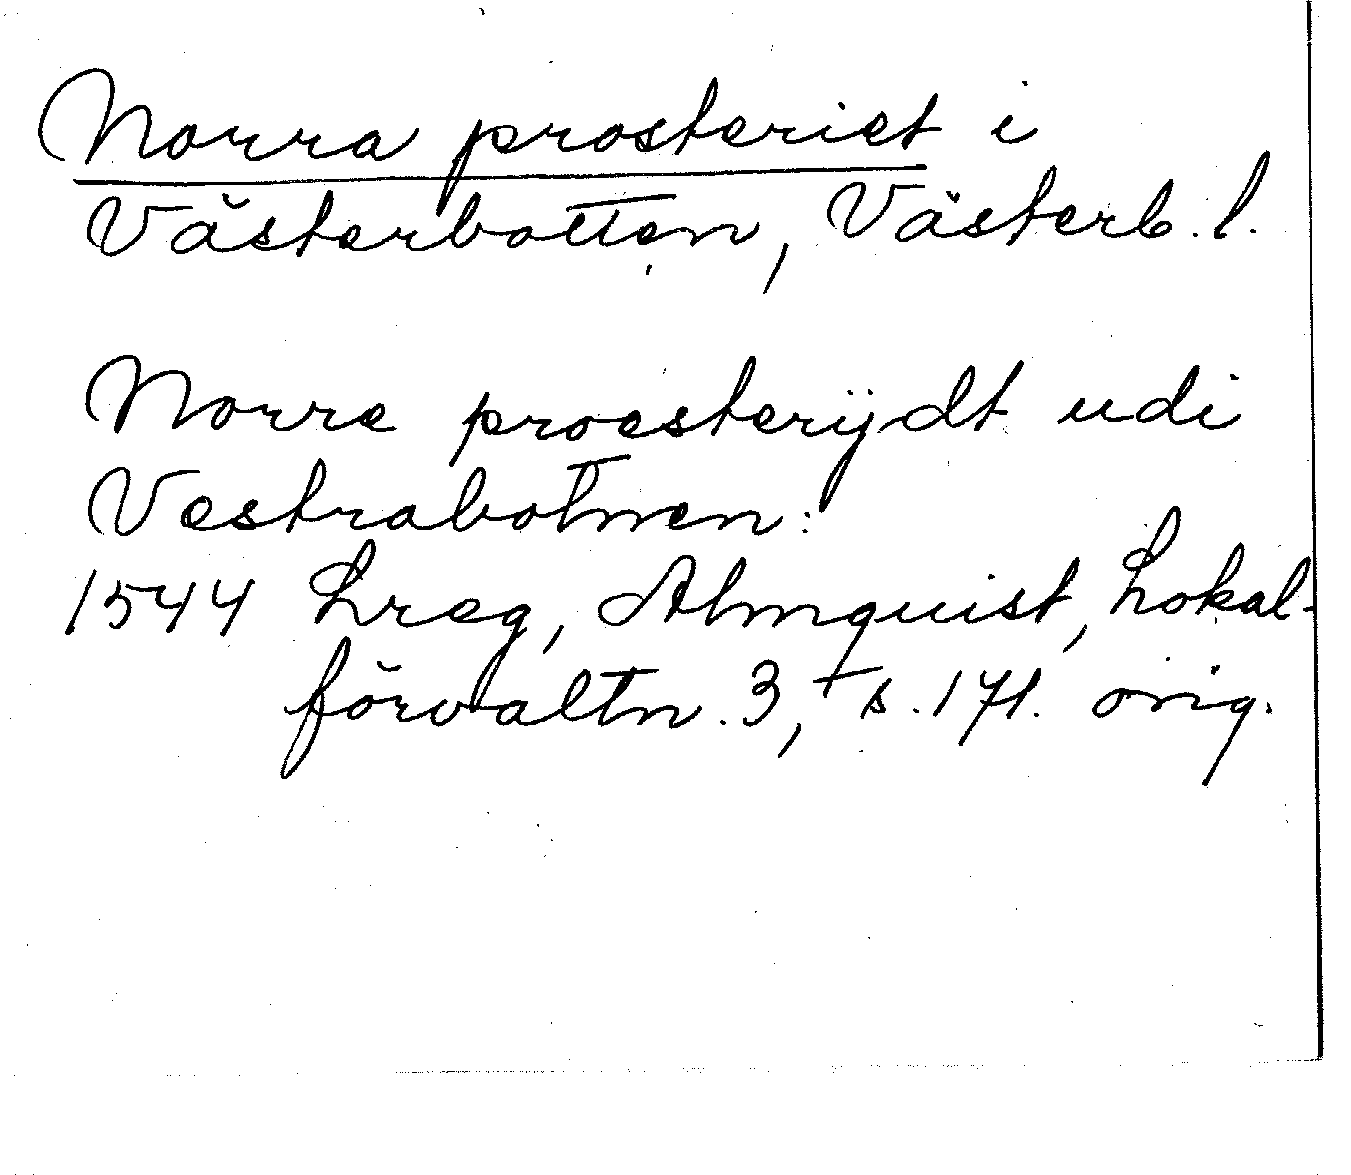 Norra prosteriet i
Västerbotten, Västerb. l.
Norre proesterÿdt udi
Vestrabotnen:
1544 Lreg, Almquist, Lokal-
förvaltn. 3, s. 171. orig.